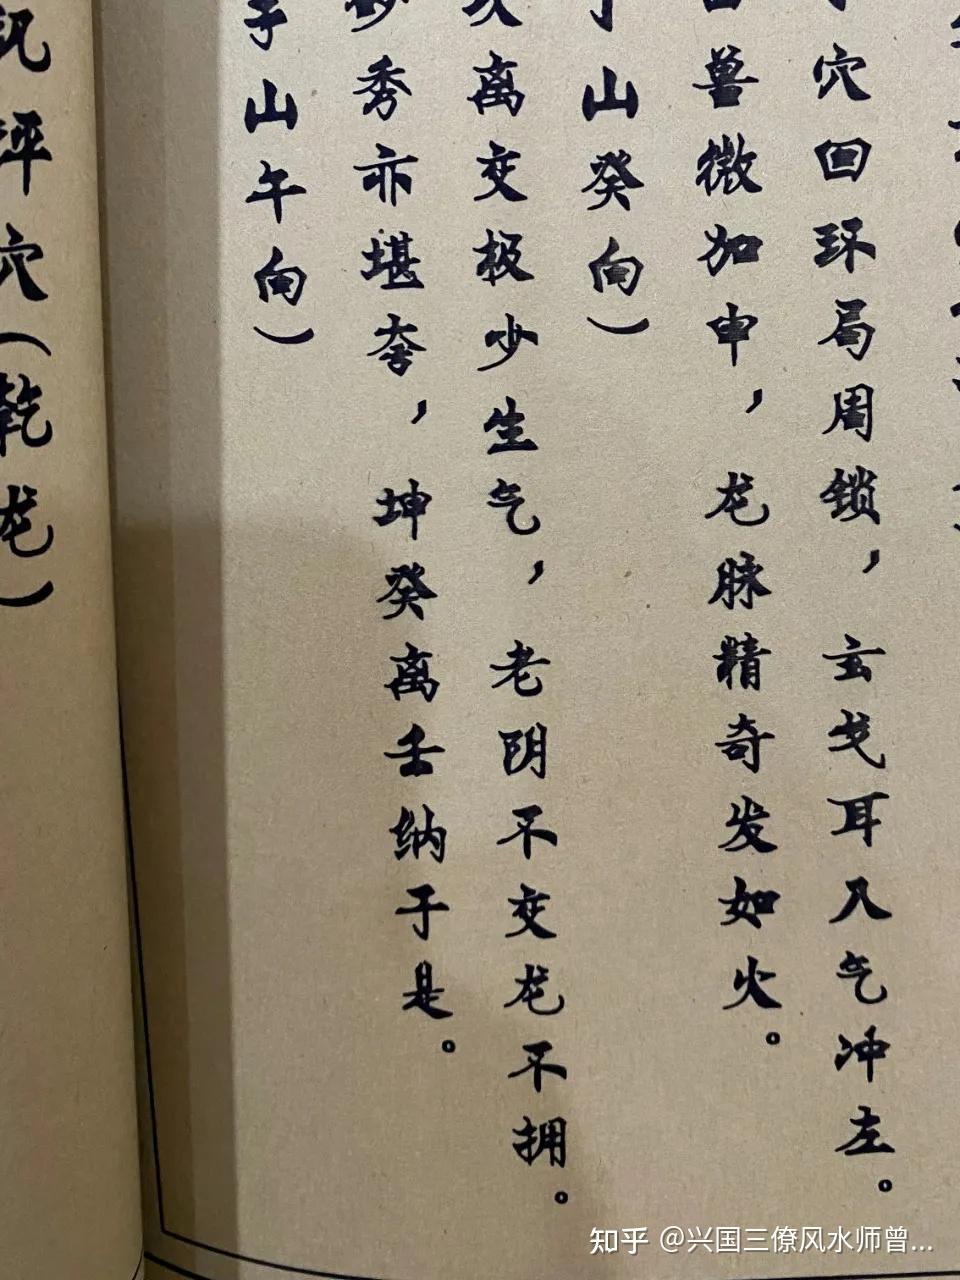 穴回环局周锁,玄戈耳入气冲左。
兽微加申,龙脉精奇发如火。
山癸向)
离交极少生气,老阴不交龙不拥。
秀亦堪夸,坤癸离壬纳于是。
山午向)
坪穴(乾龙)
知乎 @兴国三僚风水师曾...